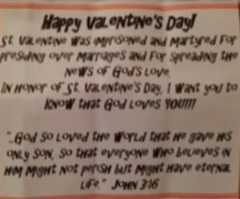 Happy Valentine's Day!
St. Valentine was imprisoned and martyred for
presiding over marriages and for spreading the
news of God's love.
In honor of St. Valentine's Day, I want you to
know that God loves YOU!!!!
"...God so loved the world that he gave his
only Son, so that everyone who believes in
him might not perish but might have eternal
life." John 3:16